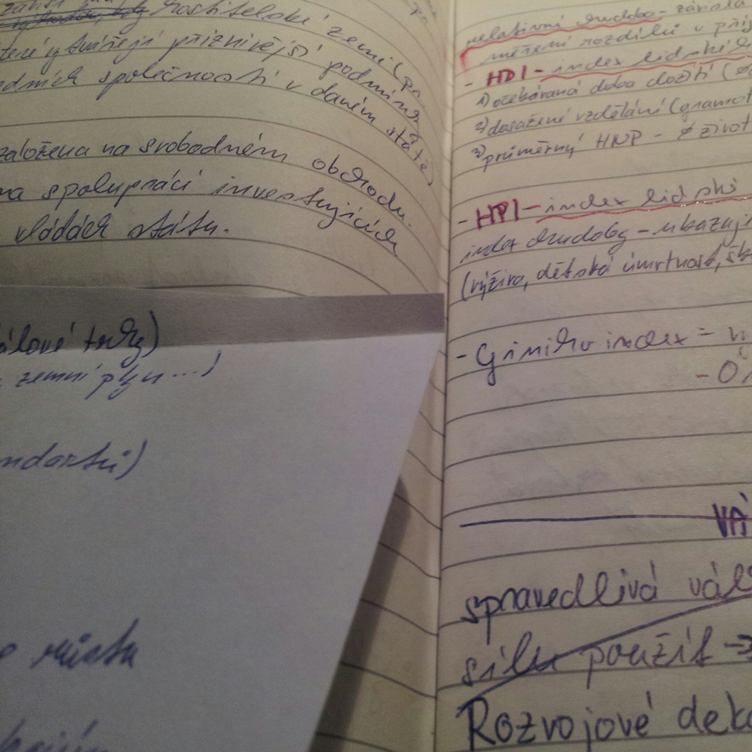 hostitelské zemi (
které vytvářejí příznivější podmínky
společností v daném státě)
založena na svobodném obchodu.
na spolupráci investujících
vládách státu.
álové trhy)
zemní plyn ...)
ndartů)
místa
relativní chudoba -
měření rozdílů v
- HDI - index lidské
1) očekávaná doba dožití (
2) dosažené vzdělání (gramot
3) průměrný HNP - ø život
- HPI - index lidské
index chudoby - ukazuj
(výživa, dětská úmrtnost,
- Giniho index =
- 0
VÁ
spravedlivá vál
sílu použít →
Rozvojové deká